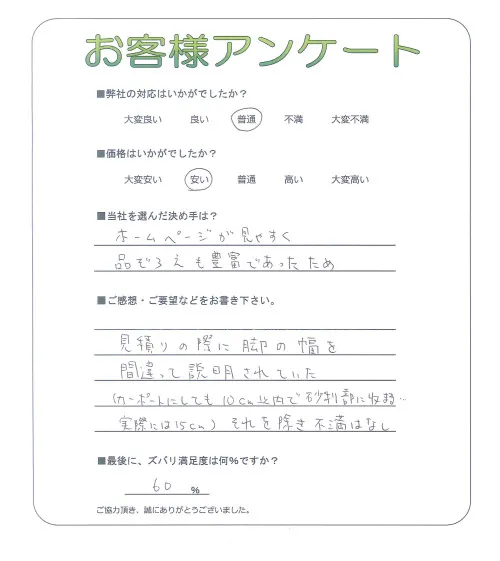 お客様アンケート
■弊社の対応はいかがでしたか？
大変良い 良い 普通 不満 大変不満
■価格はいかがでしたか？
大変安い 安い 普通 高い 大変高い
■当社を選んだ決め手は？
ホームページが見やすく
品ぞろえも豊富であったため
■ご感想・ご要望などをお書き下さい。
見積りの際に脚の幅を
間違って説明されていた
(カーポートにしても10cm以内で砂利部に収まる…
実際には15cm) それを除き不満はなし
■最後に、ズバリ満足度は何%ですか？
60 %
ご協力頂き、誠にありがとうございました。